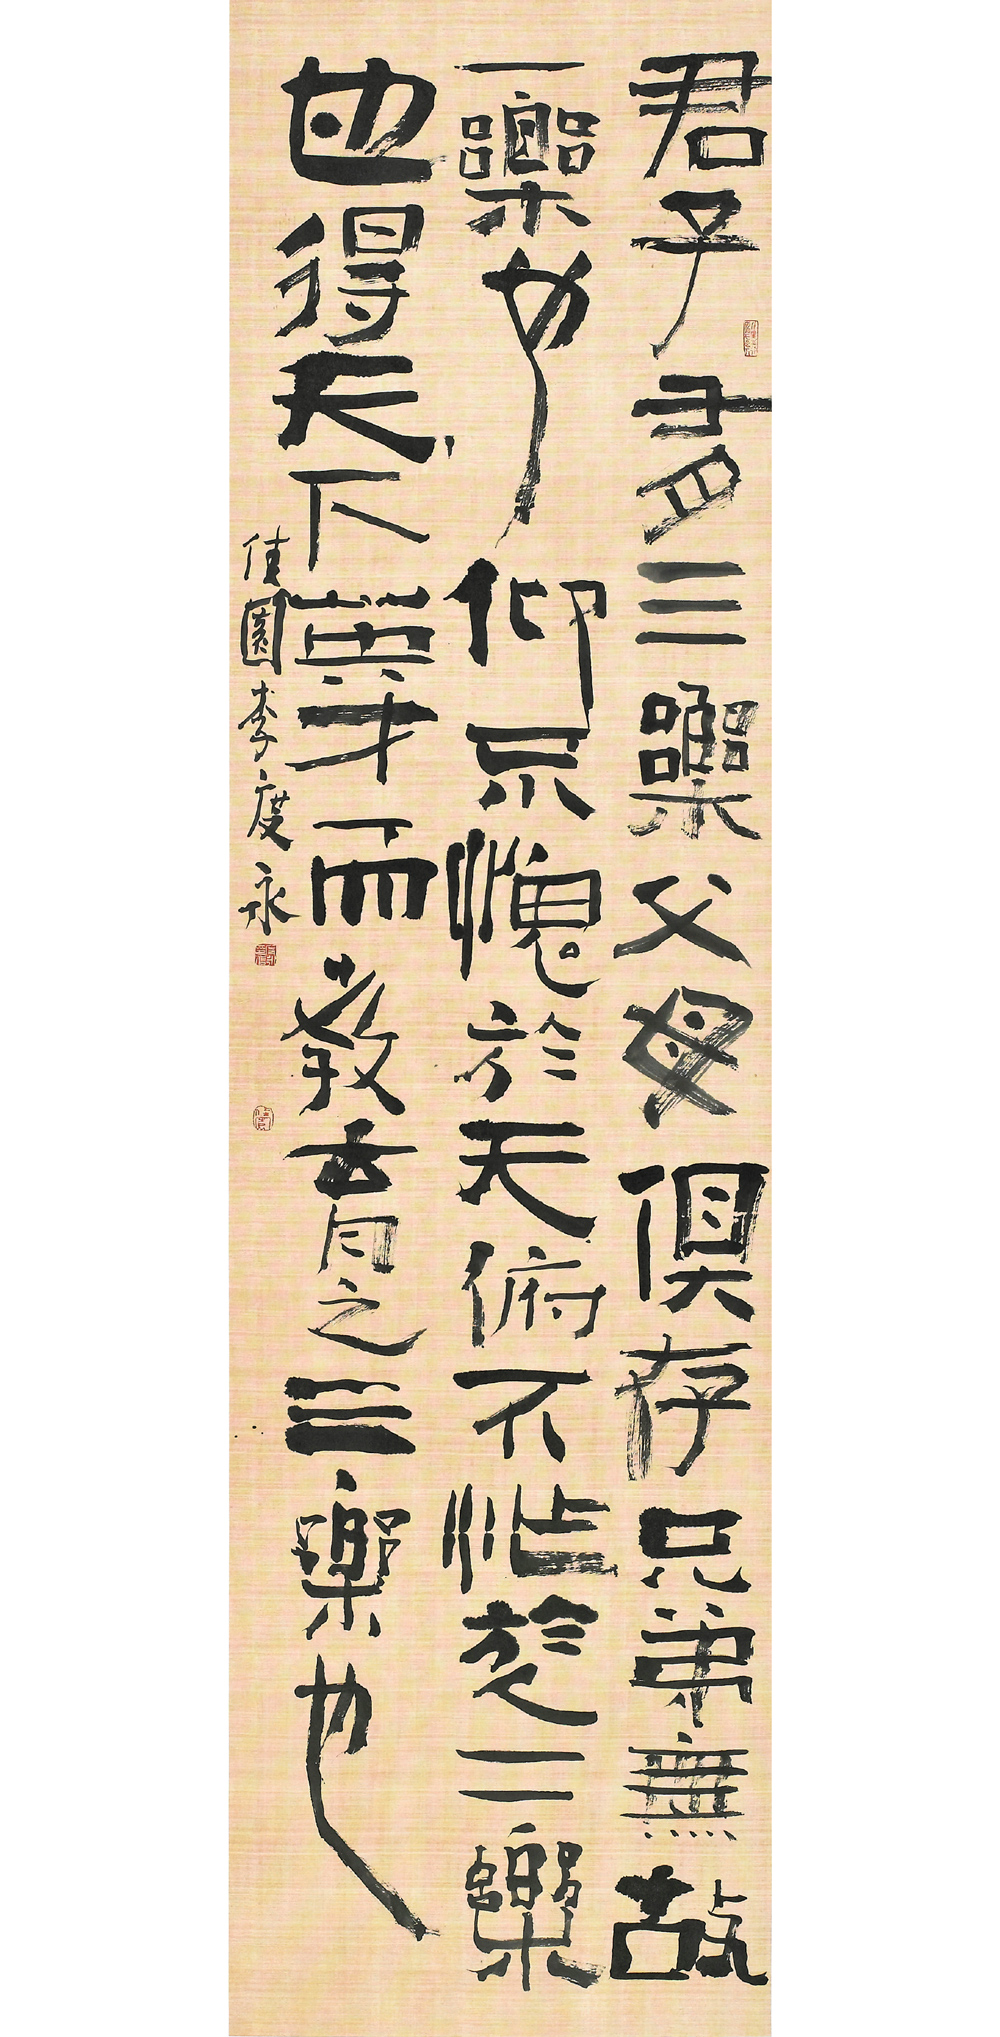 君子有三樂父母俱存兄弟無故
一樂也仰不愧於天俯不怍於人二樂
也得天下英才而教育之三樂也
佳園李度永